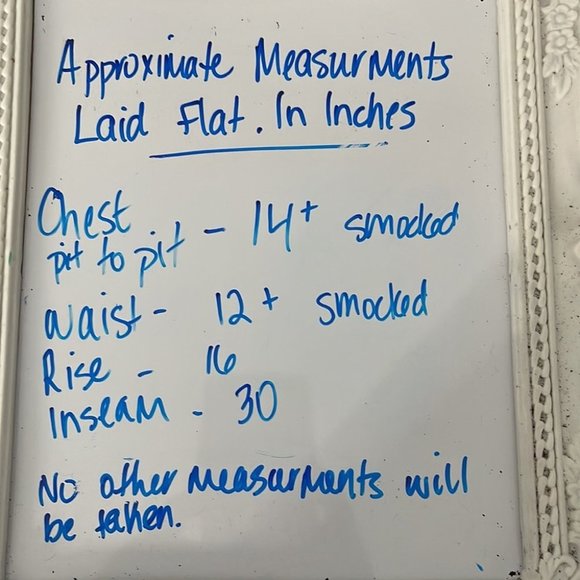 Approximate Measurments
Laid Flat. In Inches
Chest
pit to pit - 14+ smocked
Waist - 12+ smocked
Rise - 16
Inseam - 30
No other measurments will
be taken.